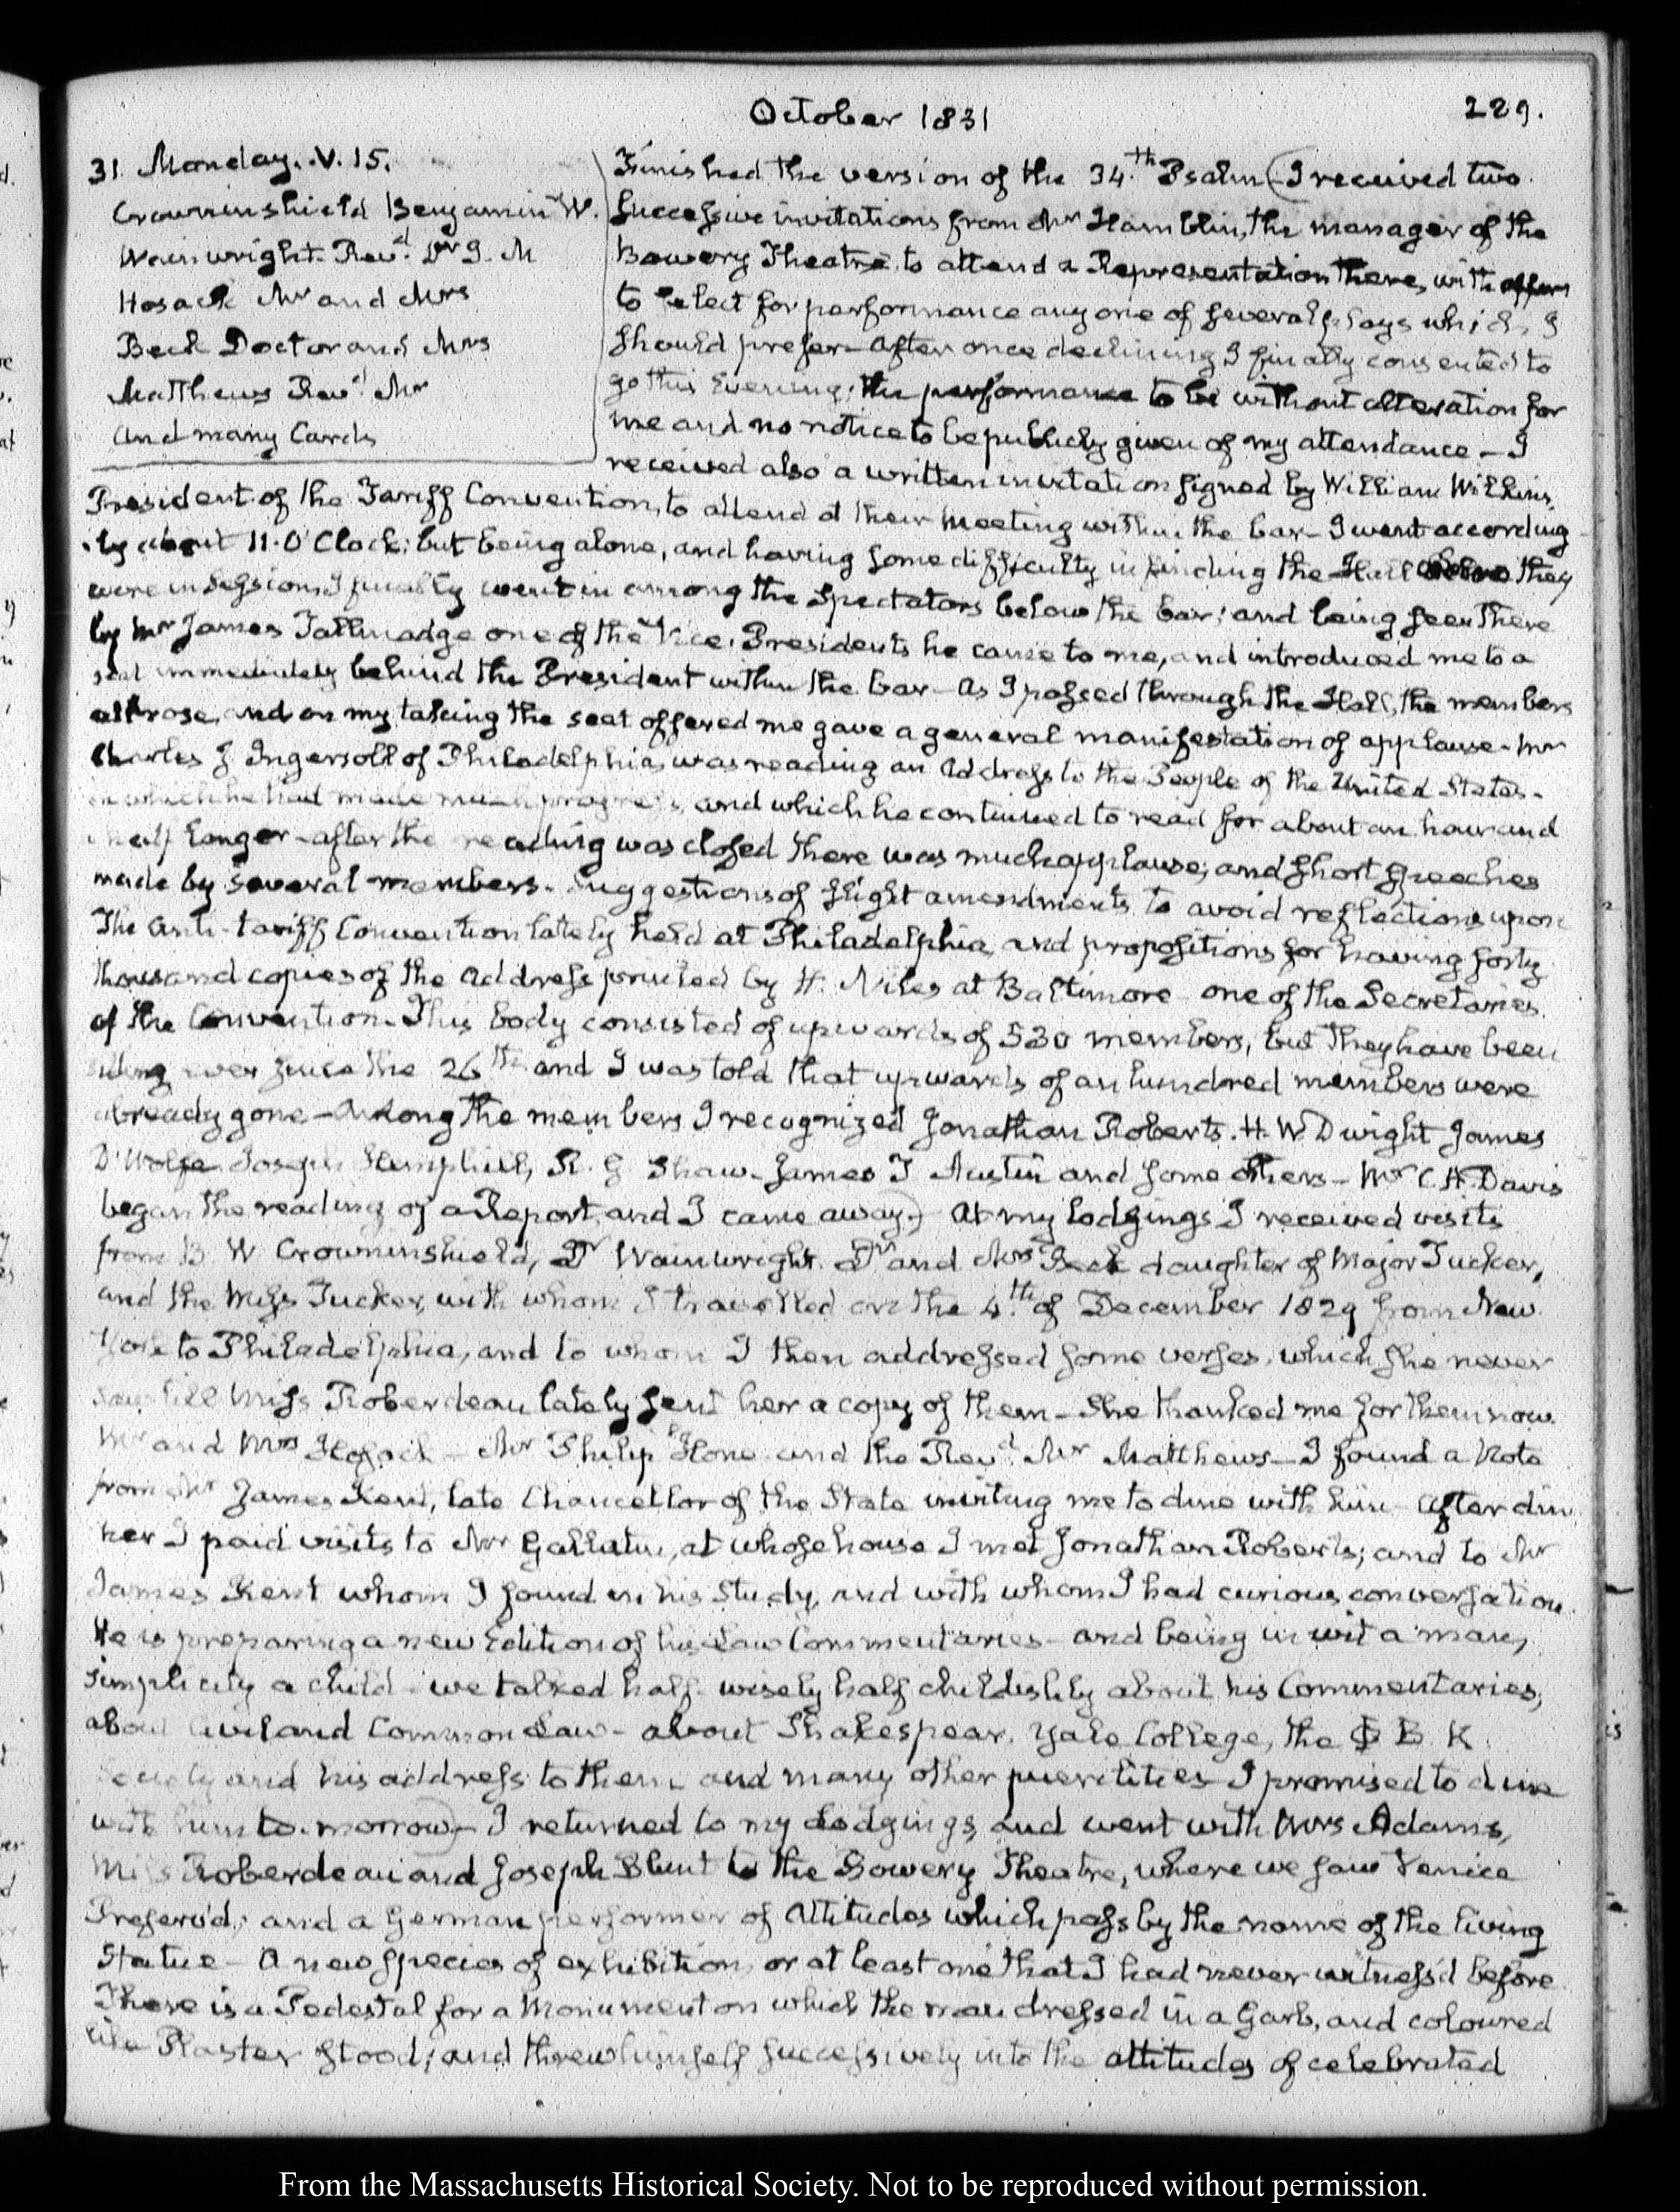 October 1831
229.
31. Monday. V. 15.
Crowninshield Benjamin W.
Wainwright. Revd. Dr J. M
Hosack Mr and Mrs
Beck Doctor and Mrs
Matthews Revd. Mr
And many Cards
Finished the version of the 34.th Psalm (I received two
successive invitations from Mr Hamblin, the manager of the
Bowery Theatre, to attend a Representation there, with offers
to select for performance any one of several plays which I
should prefer. After once declining I finally consented to
go this Evening; the performance to be without alteration for
me and no notice to be publicly given of my attendance — I
received also a written invitation signed by William Wilkins,
President of the Tariff Convention, to attend at their meeting within the bar — I went according
-ly about 11. O'Clock; but being alone, and having some difficulty in finding the Hall where they
were in Session, I finally went in among the Spectators below the bar; and being seen there
by Mr James Tallmadge one of the Vice-Presidents he came to me, and introduced me to a
seat immediately behind the President within the bar — As I passed through the Hall, the members
all rose, and on my taking the seat offered me gave a general manifestation of applause. Mr
Charles J. Ingersoll of Philadelphia, was reading an Address to the People of the United States.
in which he had made much progress, and which he continued to read for about an hour and
a half longer — after the reading was closed there was much applause; and short speeches
made by several members. Suggestions of slight amendments to avoid reflections upon
the Anti-tariff Convention lately held at Philadelphia, and propositions for having forty
thousand copies of the Address printed by H. Niles at Baltimore — one of the Secretaries
of the Convention. This body consisted of upwards of 530 members, but they have been
sitting ever since the 26th and I was told that upwards of an hundred members were
already gone — Among the members I recognized Jonathan Roberts. H. W. Dwight James
D'Wolfe. Joseph Hemphill, R. G Shaw. James T Austin and some others — Mr C. H. Davis
began the reading of a Report, and I came away.) At my lodgings I received visits
from B W Crowninshield, Dr Wainwright. Dr and Mrs Beck daughter of Major Tucker,
and the Miss Tucker, with whom I travelled on the 4.th of December 1829 from New
York to Philadelphia, and to whom I then addressed some verses, which she never
saw till Miss Roberdeau lately sent her a copy of them — She thanked me for them now.
Mr and Mrs Hosack — Mr Philip Hone and the Revd. Mr Matthews — I found a Note
from Mr James Kent, late Chancellor of the State inviting me to dine with him — After din
ner I paid visits to Mr Gallatin, at whose house I met Jonathan Roberts; and to Mr
James Kent whom I found in his Study, and with whom I had curious conversation.
He is preparing a new Edition of his Law Commentaries — and being in wit a man,
simplicity a child — we talked half wisely half childishly about his Commentaries,
about Civil and Common Law — about Shakespear, Yale College, the Φ B. K.
Society and his address to them and many other puerilities — I promised to dine
with him to-morrow) — I returned to my Lodgings, and went with Mrs Adams,
Miss Roberdeau and Joseph Blunt to the Bowery Theatre, where we saw Venice
Preserv'd; and a German performer of Attitudes which pass by the name of the living
Statue — A new species of exhibition, or at least one that I had never witness'd before.
There is a Pedestal for a Monument on which the man dressed in a Garb, and coloured
like Plaster stood; and threw himself successively into the attitudes of celebrated
From the Massachusetts Historical Society. Not to be reproduced without permission.